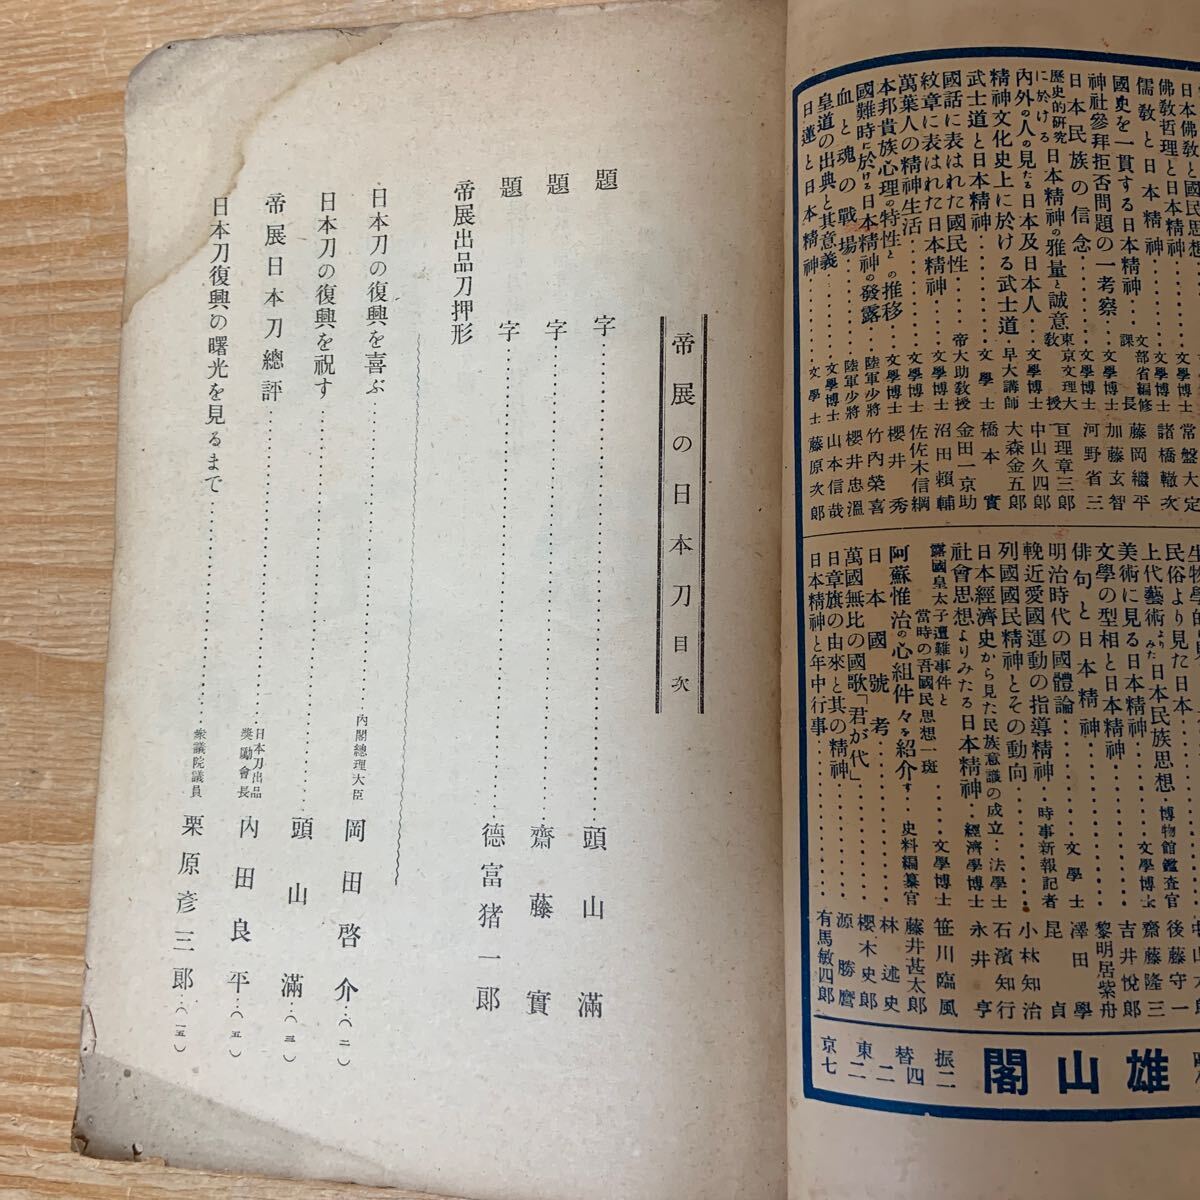 日本佛教と國民思想‥‥文學博士 常盤大定
佛教哲理と日本精神‥‥文學博士 諸橋轍次
儒教と日本精神‥‥文部省編修課長 藤岡繼平
國史を一貫する日本精神‥‥文學博士 加藤玄智
神社參拜拒否問題の一考察‥‥河野省三
日本民族の信念‥‥東京文理大教授 亘理章三郎
歷史的研究に於ける日本精神の雅量と誠意‥‥文學博士 中山久四郎
內外の人の見たる日本及日本人‥‥早大講師 大森金五郎
精神文化史上に於ける武士道‥‥文學士 橋本實
武士道と日本精神‥‥帝大助教授 金田一京助
國語に表はれた國民性‥‥文學博士 沼田賴輔
紋章に表はれた日本精神‥‥文學博士 佐佐木信綱
萬葉人の精神生活‥‥文學博士 櫻井秀
本邦貴族心理の特性との推移‥‥陸軍少將 竹內榮喜
國難時に於ける日本精神の發露‥‥陸軍少將 櫻井忠溫
血と魂の戰場‥‥文學博士 山本信哉
皇道の出典と其意義‥‥文學士 藤原次郎
日蓮と日本精神
民俗より見た日本‥‥後藤守一
上代藝術よりみた日本民族思想‥博物館鑑査官 齋藤隆三
美術に見る日本精神‥‥文學博士 吉井悅郎
文學の型相と日本精神‥‥黎明居紫舟
俳句と日本精神‥‥文學士 澤田學
明治時代の國體論‥‥昆貞
輓近愛國運動の指導精神‥時事新報記者 小林知治
列國國民精神とその動向‥‥石濱知行
日本經濟史から見た民族意識の成立‥法學士 永井亨
社會思想よりみたる日本精神‥經濟學博士
露國皇太子遭難事件と當時の吾國民思想一斑‥文學博士 笹川臨風
阿蘇惟治の心組件々を紹介す 史料編纂官 藤井甚太郎
日本國號考‥‥林述史
萬國無比の國歌「君が代」‥‥櫻木史郎
日章旗の由來と其の精神‥‥源勝麿
日本精神と年中行事‥‥有馬敏四郎
雄山閣
振替東京
二四二二七
帝展の日本刀 目次
題字‥‥頭山滿
題字‥‥齋藤實
題字‥‥德富猪一郎
帝展出品刀押形
日本刀の復興を喜ぶ‥‥內閣總理大臣 岡田啓介‥(一)
日本刀の復興を祝す‥‥頭山滿‥(三)
帝展日本刀總評‥‥日本刀出品獎勵會長 內田良平‥(五)
日本刀復興の曙光を見るまで‥‥衆議院議員 栗原彥三郎‥(一五)